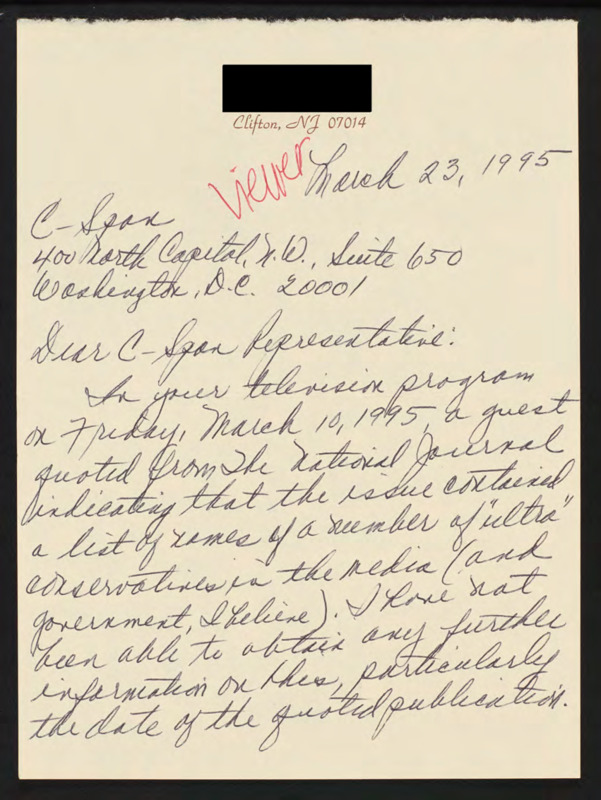 Clifton, NJ 07014
viewer
March 23, 1995
C-Span
400 North Capitol, N.W., Suite 650
Washington, D.C. 20001
Dear C-Span Representative:
In your television program
on Friday, March 10, 1995, a guest
quoted from The National Journal
indicating that the issue contained
a list of names of a number of "ultra"
conservatives in the media (and
government, I believe). I have not
been able to obtain any further
information on this, particularly
the date of the quoted publication.